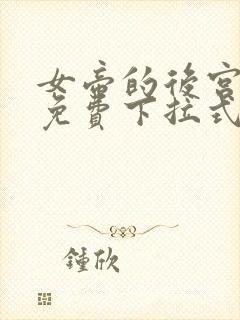 女帝的後宮
免費下拉式
鍾欣